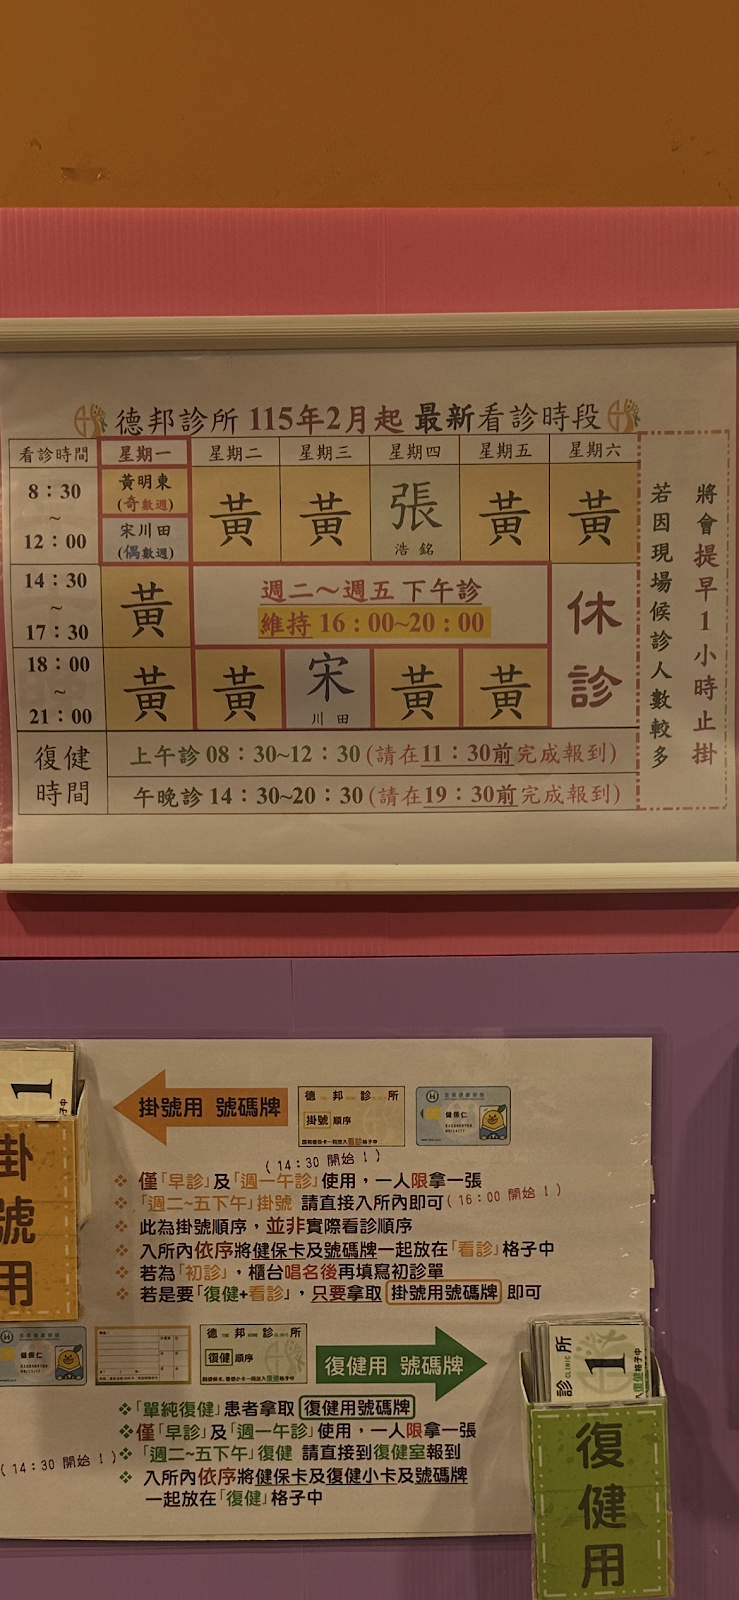 德邦診所 115年2月起 最新看診時段
看診時間 星期一 星期二 星期三 星期四 星期五 星期六
8：30
~
12：00
黃明東
(奇數週)
宋川田
(偶數週)
黃 黃 張 黃 黃
浩銘
14：30
~
17：30
黃
週二～週五 下午診
維持 16：00~20：00
休診
18：00
~
21：00
黃 黃 宋 黃 黃
川田
復健時間
上午診 08：30~12：30 (請在11：30前完成報到)
午晚診 14：30~20：30 (請在19：30前完成報到)
若因現場候診人數較多
將會提早1小時止掛
1
掛號用
掛號用 號碼牌
德邦診所
掛號 順序
健保仁
(14:30 開始！)
僅「早診」及「週一午診」使用，一人限拿一張
「週二~五下午」掛號 請直接入所內即可(16:00 開始！)
此為掛號順序，並非實際看診順序
入所內依序將健保卡及號碼牌一起放在「看診」格子中
若為「初診」，櫃台唱名後再填寫初診單
若是要「復健+看診」，只要拿取 掛號用號碼牌 即可
健保仁
德邦診所
復健 順序
復健用 號碼牌
「單純復健」患者拿取 復健用號碼牌
僅「早診」及「週一午診」使用，一人限拿一張
「週二~五下午」復健 請直接到復健室報到
(14:30 開始！)
入所內依序將健保卡及復健小卡及號碼牌
一起放在「復健」格子中
診所
CLINIC
1
復健用